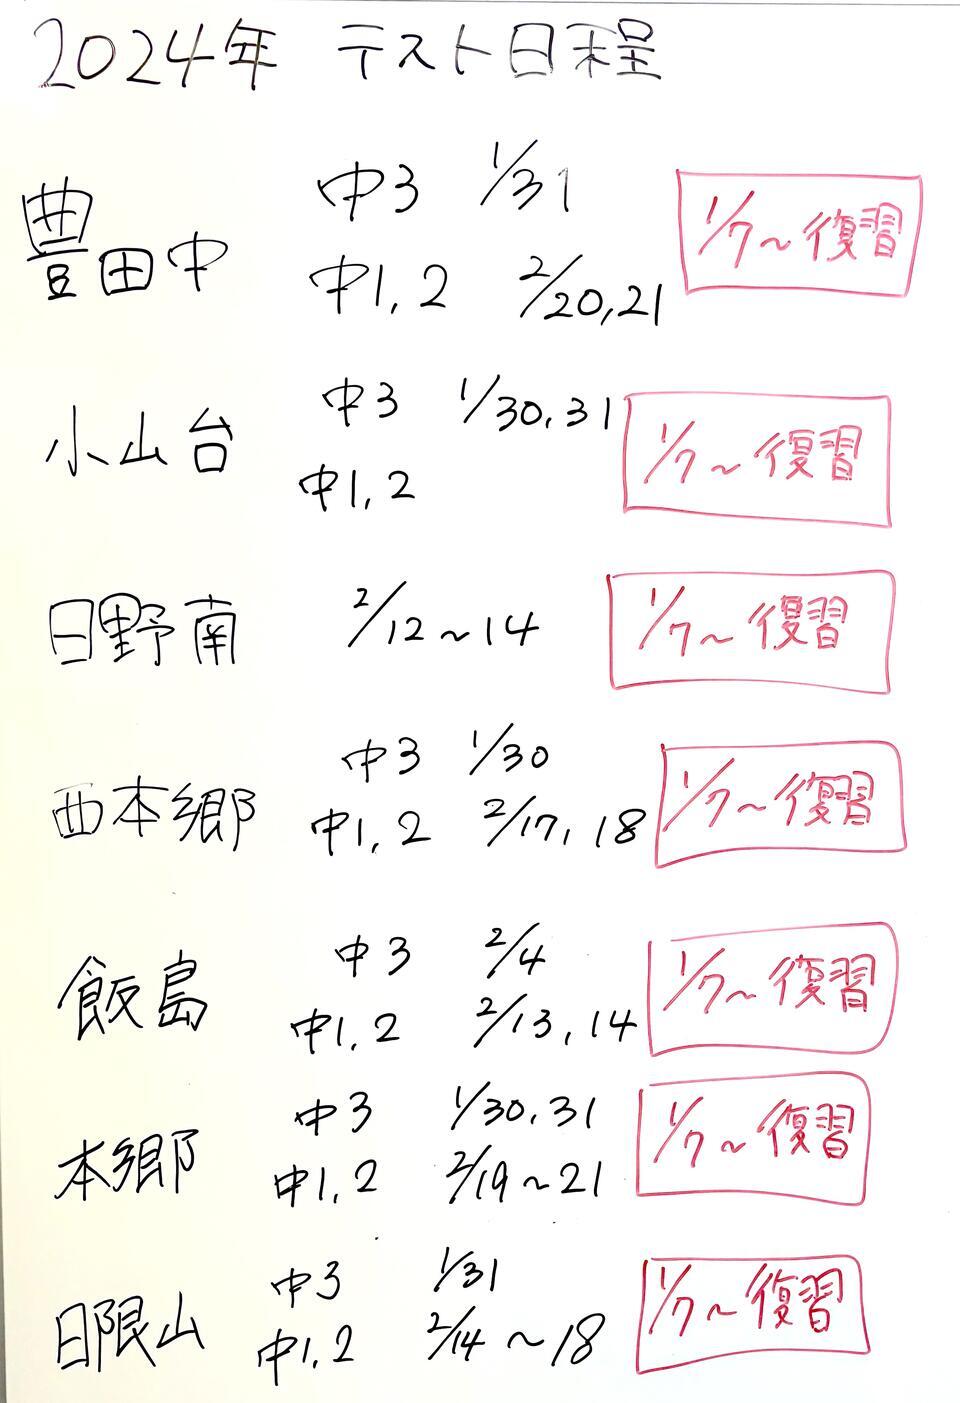 2024年 テスト日程
豊田中 中3 1/31
中1,2 2/20,21
1/7~復習
小山台 中3 1/30,31
中1,2
1/7~復習
日野南 2/12~14
1/7~復習
西本郷 中3 1/30
中1,2 2/17,18
1/7~復習
飯島 中3 2/4
中1,2 2/13,14
1/7~復習
本郷 中3 1/30,31
中1,2 2/19~21
1/7~復習
日限山 中3 1/31
中1,2 2/14~18
1/7~復習